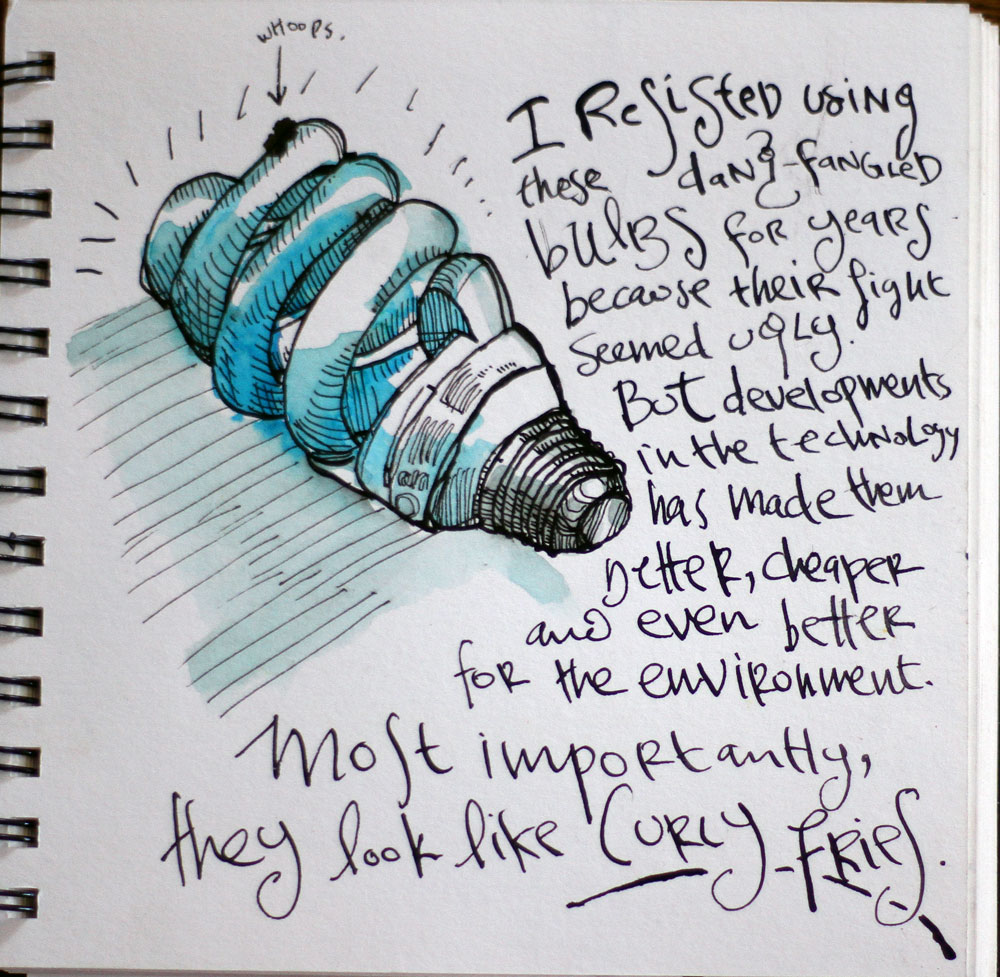 WHOOPS.
I Resisted using
these dang-fangled
bulbs for years
because their light
seemed ugly.
But developments
in the technology
has made them
better, cheaper
and even better
for the environment.
Most importantly,
they look like Curly Fries.